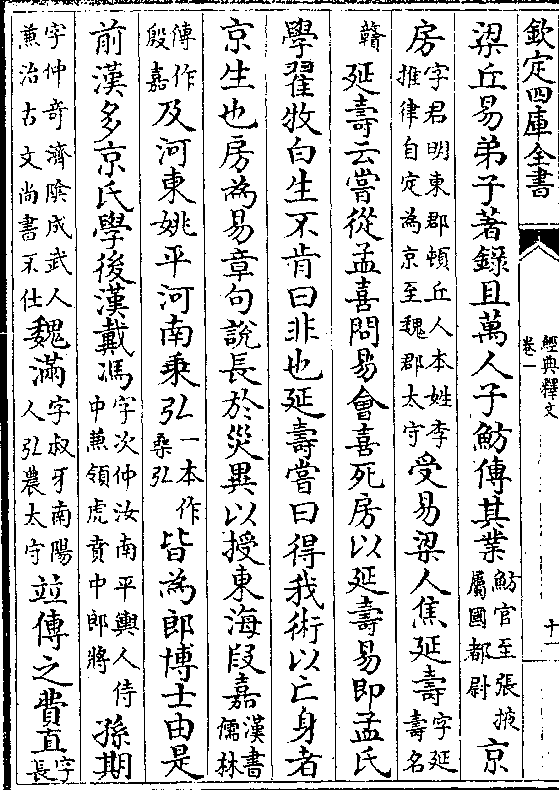 欽定四庫全書
經典釋文
卷一
十一
梁丘易弟子著録且萬人子魴傳其業魴官至張掖屬國都尉京
房字君明東郡頓丘人本姓李推律自定為京至魏郡太守受易梁人焦延壽字延壽名
贛延壽云嘗從孟喜問易會喜死房以延壽易即孟氏
學翟牧白生不肯曰非也延壽嘗曰得我術以亡身者
京生也房為易章句說長於災異以授東海段嘉漢書儒林
傳作殷嘉及河東姚平河南乗弘一本作桑弘皆為郎博士由是
前漢多京氏學後漢戴馮字次仲汝南平輿人侍中兼領虎賁中郎將孫期
字仲奇濟陰成武人兼治古文尚書不仕魏滿字叔牙南陽人弘農太守竝傳之費直字長